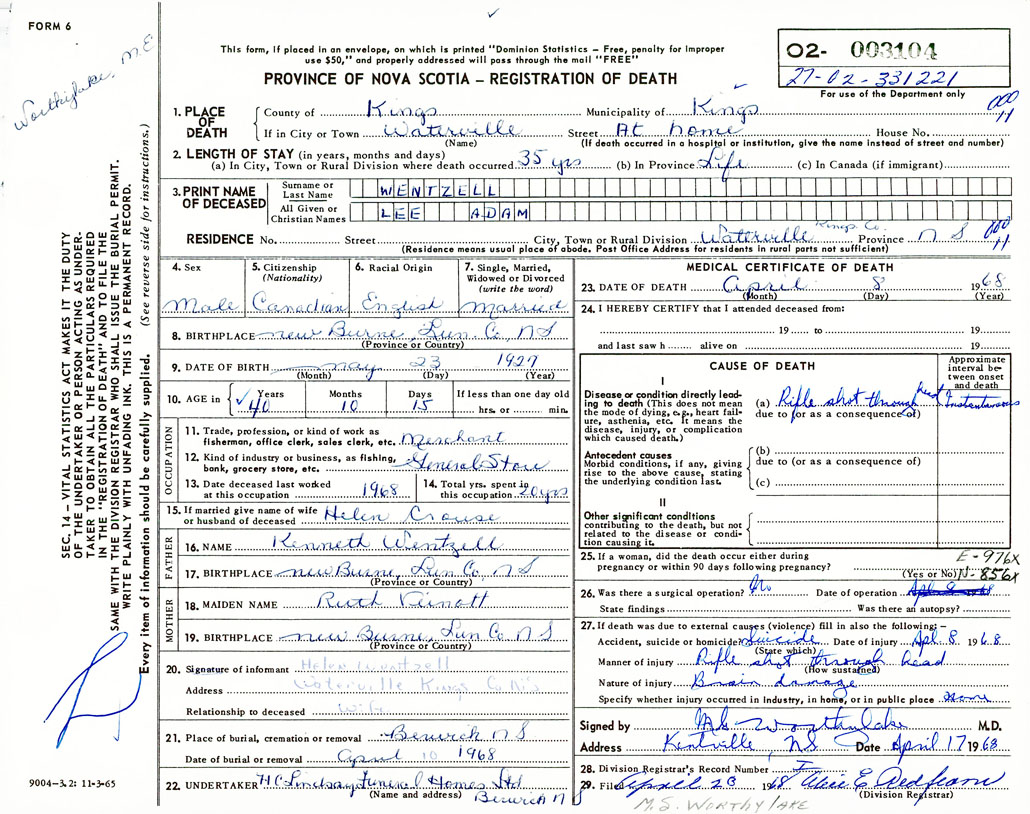 FORM 6
Worthylake, M.E
This form, if placed in an envelope, on which is printed "Dominion Statistics – Free, penalty for improper
use $50," and properly addressed will pass through the mail "FREE"
PROVINCE OF NOVA SCOTIA – REGISTRATION OF DEATH
02- 003104
27-02-331221
For use of the Department only
SEC. 14 – VITAL STATISTICS ACT MAKES IT THE DUTY
OF THE UNDERTAKER OR PERSON ACTING AS UNDER-
TAKER TO OBTAIN ALL THE PARTICULARS REQUIRED
IN THE "REGISTRATION OF DEATH" AND TO FILE THE
SAME WITH THE DIVISION REGISTRAR WHO SHALL ISSUE THE BURIAL PERMIT.
WRITE PLAINLY WITH UNFADING INK. THIS IS A PERMANENT RECORD.
Every item of information should be carefully supplied. (See reverse side for instructions.)
1. PLACE OF DEATH
County of Kings Municipality of Kings
000
11
If in City or Town Waterville Street At home House No.
(Name) (If death occurred in a hospital or institution, give the name instead of street and number)
2. LENGTH OF STAY (in years, months and days)
(a) In City, Town or Rural Division where death occurred 35 yrs (b) In Province Life (c) In Canada (if immigrant)
3. PRINT NAME OF DECEASED
Surname or Last Name WENTZELL
All Given or Christian Names LEE ADAM
Kings Co.
RESIDENCE No. Street City, Town or Rural Division Waterville Province N S
000
11
(Residence means usual place of abode. Post Office Address for residents in rural parts not sufficient)
4. Sex 5. Citizenship (Nationality) 6. Racial Origin 7. Single, Married, Widowed or Divorced (write the word)
Male Canadian English Married
8. BIRTHPLACE New Burne, Lun. Co, N S
(Province or Country)
9. DATE OF BIRTH May 23 1927
(Month) (Day) (Year)
10. AGE in Years Months Days If less than one day old
40 10 15 hrs. or min.
OCCUPATION
11. Trade, profession, or kind of work as
fisherman, office clerk, sales clerk, etc. Merchant
12. Kind of industry or business, as fishing,
bank, grocery store, etc. General Store
13. Date deceased last worked
at this occupation 1968
14. Total yrs. spent in
this occupation 20 yrs
15. If married give name of wife
or husband of deceased Helen Crouse
FATHER
16. NAME Kenneth Wentzell
17. BIRTHPLACE New Burne, Lun Co, N S
(Province or Country)
MOTHER
18. MAIDEN NAME Ruth Veinott
19. BIRTHPLACE New Burne, Lun Co N S
(Province or Country)
20. Signature of informant Helen Wentzell
Address Waterville Kings Co N.S
Relationship to deceased Wife
21. Place of burial, cremation or removal Berwick N S
Date of burial or removal April 10 1968
22. UNDERTAKER H.C. Lindsay Funeral Homes Ltd
(Name and address) Berwick N S
MEDICAL CERTIFICATE OF DEATH
23. DATE OF DEATH April 8 1968
(Month) (Day) (Year)
24. I HEREBY CERTIFY that I attended deceased from:
19 to 19
and last saw h alive on 19
CAUSE OF DEATH
Approximate interval between onset and death
I
Disease or condition directly lead-
ing to death (This does not mean
the mode of dying, e.g., heart fail-
ure, asthenia, etc. It means the
disease, injury, or complication
which caused death.)
(a) Rifle shot through head Instantaneous
due to (or as a consequence of)
Antecedent causes
Morbid conditions, if any, giving
rise to the above cause, stating
the underlying condition last.
(b)
due to (or as a consequence of)
(c)
II
Other significant conditions
contributing to the death, but not
related to the disease or condi-
tion causing it.
25. If a woman, did the death occur either during
pregnancy or within 90 days following pregnancy?
(Yes or No)
E-976X
N-856X
26. Was there a surgical operation? No Date of operation
State findings Was there an autopsy?
27. If death was due to external causes (violence) fill in also the following:–
Accident, suicide or homicide? Suicide Date of injury Apl. 8 1968
(State which)
Manner of injury Rifle shot through head
(How sustained)
Nature of injury Brain damage
Specify whether injury occurred in industry, in home, or in public place Home
Signed by M.S. Worthylake M.D.
Address Kentville, NS Date April 17 1968
28. Division Registrar's Record Number
29. Filed April 23 1968
(Division Registrar)
M.S. WORTHYLAKE
9004-3.2: 11-3-65